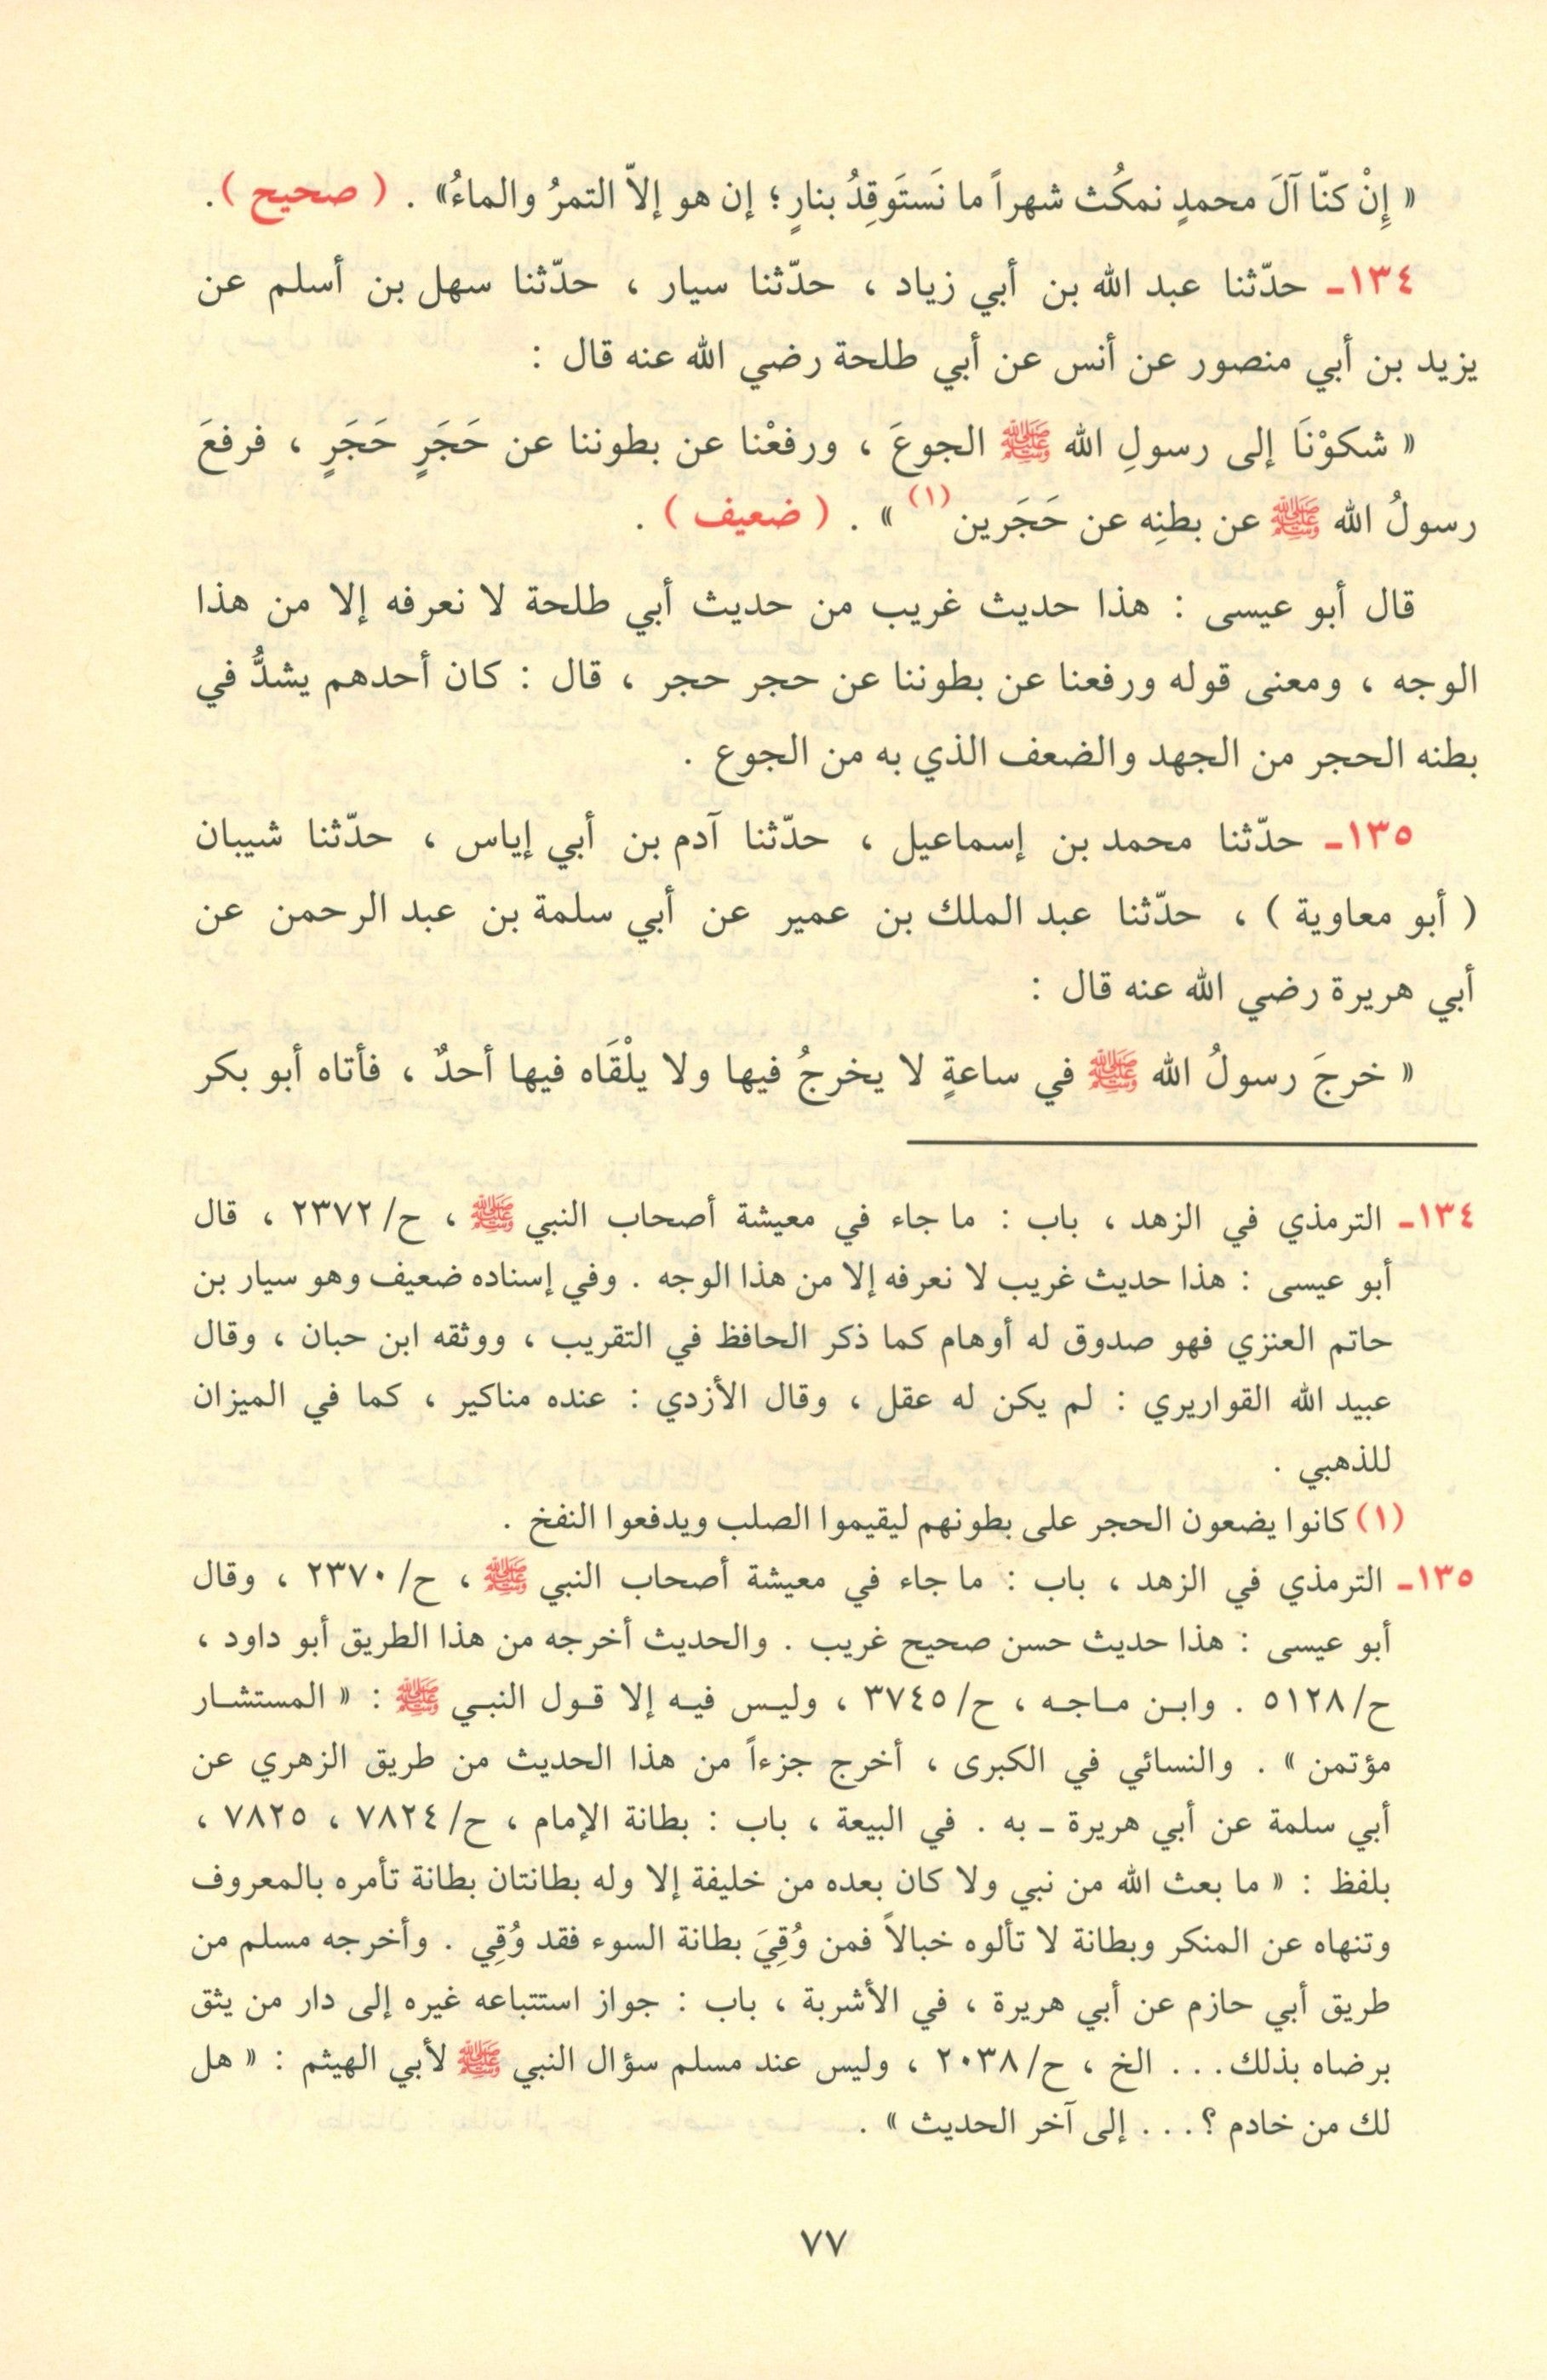 « إِنْ كنّا آلَ محمدٍ نمكُث شهراً ما نَستَوقِدُ بنارٍ ؛ إن هو إلاّ التمرُ والماءُ» . ( صحيح ) .
١٣٤ـ حدّثنا عبد الله بن أبي زياد ، حدّثنا سيار ، حدّثنا سهل بن أسلم عن
يزيد بن أبي منصور عن أنس عن أبي طلحة رضي الله عنه قال :
« شكوْنَا إلى رسولِ الله ﷺ الجوعَ ، ورفعْنا عن بطوننا عن حَجَرٍ حَجَرٍ ، فرفعَ
رسولُ الله ﷺ عن بطنِه عن حَجَرين (١) » . ( ضعيف ) .
قال أبو عيسى : هذا حديث غريب من حديث أبي طلحة لا نعرفه إلا من هذا
الوجه ، ومعنى قوله ورفعنا عن بطوننا عن حجر حجر ، قال : كان أحدهم يشدُّ في
بطنه الحجر من الجهد والضعف الذي به من الجوع .
١٣٥ـ حدّثنا محمد بن إسماعيل ، حدّثنا آدم بن أبي إياس ، حدّثنا شيبان
( أبو معاوية ) ، حدّثنا عبد الملك بن عمير عن أبي سلمة بن عبد الرحمن عن
أبي هريرة رضي الله عنه قال :
« خرجَ رسولُ الله ﷺ في ساعةٍ لا يخرجُ فيها ولا يلْقَاه فيها أحدٌ ، فأتاه أبو بكر
١٣٤ـ الترمذي في الزهد ، باب : ما جاء في معيشة أصحاب النبي ﷺ ، ح/٢٣٧٢ ، قال
أبو عيسى : هذا حديث غريب لا نعرفه إلا من هذا الوجه . وفي إسناده ضعيف وهو سيار بن
حاتم العنزي فهو صدوق له أوهام كما ذكر الحافظ في التقريب ، ووثقه ابن حبان ، وقال
عبيد الله القواريري : لم يكن له عقل ، وقال الأزدي : عنده مناكير ، كما في الميزان
للذهبي .
(١) كانوا يضعون الحجر على بطونهم ليقيموا الصلب ويدفعوا النفخ .
١٣٥ـ الترمذي في الزهد ، باب : ما جاء في معيشة أصحاب النبي ﷺ ، ح/٢٣٧٠ ، وقال
أبو عيسى : هذا حديث حسن صحيح غريب . والحديث أخرجه من هذا الطريق أبو داود ،
ح/٥١٢٨ . وابـن مـاجـه ، ح/٣٧٤٥ ، وليـس فيـه إلا قـول النبـي ﷺ : « المستشـار
مؤتمن » . والنسائي في الكبرى ، أخرج جزءاً من هذا الحديث من طريق الزهري عن
أبي سلمة عن أبي هريرة ـ به . في البيعة ، باب : بطانة الإمام ، ح/٧٨٢٤ ، ٧٨٢٥ ،
بلفظ : « ما بعث الله من نبي ولا كان بعده من خليفة إلا وله بطانتان بطانة تأمره بالمعروف
وتنهاه عن المنكر وبطانة لا تألوه خبالاً فمن وُقِيَ بطانة السوء فقد وُقِي . وأخرجه مسلم من
طريق أبي حازم عن أبي هريرة ، في الأشربة ، باب : جواز استتباعه غيره إلى دار من يثق
برضاه بذلك... الخ ، ح/٢٠٣٨ ، وليس عند مسلم سؤال النبي ﷺ لأبي الهيثم : « هل
لك من خادم ؟... إلى آخر الحديث » .
٧٧